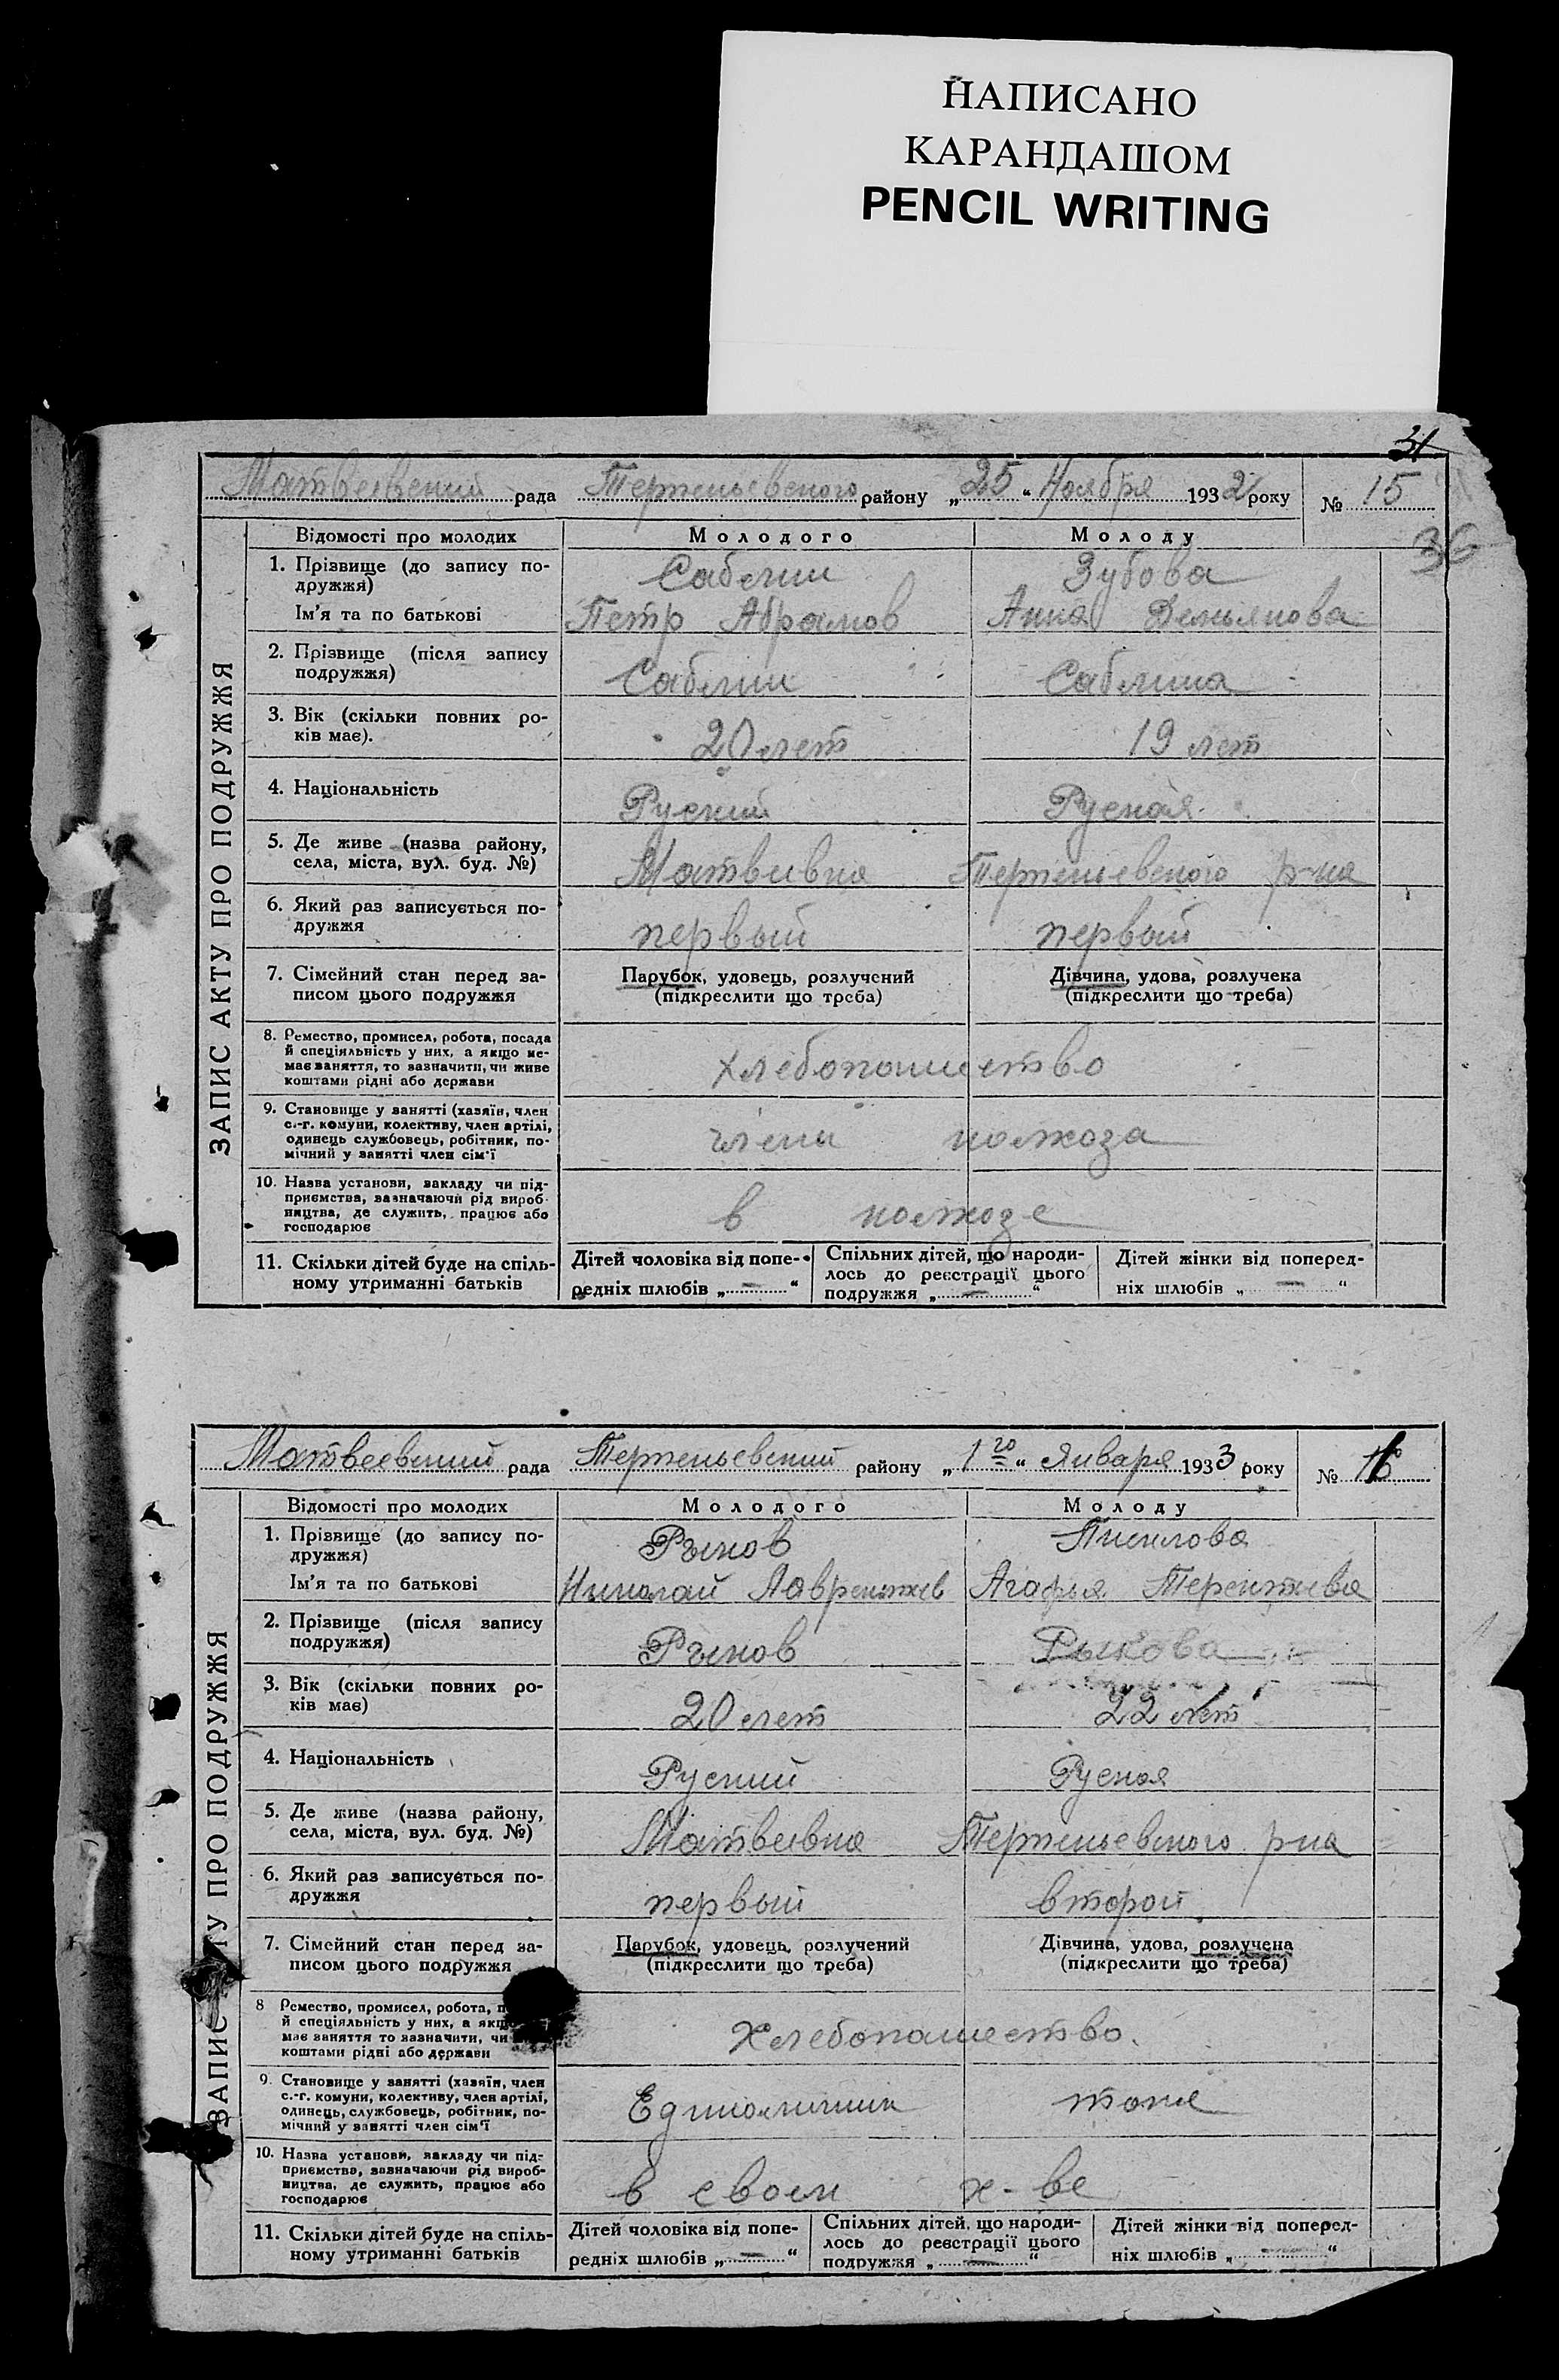 НАПИСАНО
КАРАНДАШОМ
PENCIL WRITING
31
Матвеевский рада Терпеньевского району „25“ Ноября 1932 року № 15
36
ЗАПИС АКТУ ПРО ПОДРУЖЖЯ
Відомості про молодих Молодого Молоду
1. Прізвище (до запису по-
дружжя) Саблин Зубова
Ім'я та по батькові Петр Абрамов Анна Демьянова
2. Прізвище (після запису
подружжя) Саблин Саблина
3. Вік (скільки повних ро-
ків має). 20 лет 19 лет
4. Національність Руский Руская
5. Де живе (назва району,
села, міста, вул. буд. №) Матвевка Терпеньевского р-на
6. Який раз записується по-
дружжя первый первый
7. Сімейний стан перед за-
писом цього подружжя
Парубок, удовець, розлучений
(підкреслити що треба)
Дівчина, удова, розлучена
(підкреслити що треба)
8. Ремество, промисел, робота, посада
й спеціяльність у них, а якщо не-
має заняття, то зазначити, чи живе
коштами рідні або держави
хлебопашество
9. Становище у занятті (хазяїн, член
с.-г. комуни, колективу, член артілі,
одинець службовець, робітник, по-
мічний у занятті член сім'ї
члени колхоза
10. Назва установи, закладу чи під-
приємства, зазначаючи рід вироб-
ництва, де служить, працює або
господарює
в колхозе
11. Скільки дітей буде на спіль-
ному утриманні батьків
Дітей чоловіка від попе-
редніх шлюбів „ — “
Спільних дітей, що народи-
лось до реєстрації цього
подружжя „ — “
Дітей жінки від поперед-
ніх шлюбів „ — “
Матвеевский рада Терпеньевский району „1го“ Января 1933 року № 16
ЗАПИС ТУ ПРО ПОДРУЖЖЯ
Відомості про молодих Молодого Молоду
1. Прізвище (до запису по-
дружжя) Рыков
Ім'я та по батькові Николай Лаврентьев Агафья Терентьева
2. Прізвище (після запису
подружжя) Рыков Рыкова
3. Вік (скільки повних ро-
ків має) 20 лет 22 лет
4. Національність Руский Руская
5. Де живе (назва району,
села, міста, вул. буд. №) Матвевка Терпеньевского р-на
6. Який раз записується по-
дружжя первый второй
7. Сімейний стан перед за-
писом цього подружжя
Парубок, удовець, розлучений
(підкреслити що треба)
Дівчина, удова, розлучена
(підкреслити що треба)
8 Ремество, промисел, робота, п
й спеціяльність у них, а якщ
має заняття то зазначити, чи
коштами рідні або держави
Хлебопашество.
9. Становище у занятті (хазяїн, член
с.-г. комуни, колективу, член артілі,
одинець, службовець, робітник, по-
мічний у занятті член сім'ї
Единоличник тоже
10. Назва установи, закладу чи під-
приємства, зазначаючи рід вироб-
ництва, де служить, працює або
господарює
в своем х-ве
11. Скільки дітей буде на спіль-
ному утриманні батьків
Дітей чоловіка від попе-
редніх шлюбів „ — “
Спільних дітей, що народи-
лось до реєстрації цього
подружжя „ — “
Дітей жінки від поперед-
ніх шлюбів „ — “